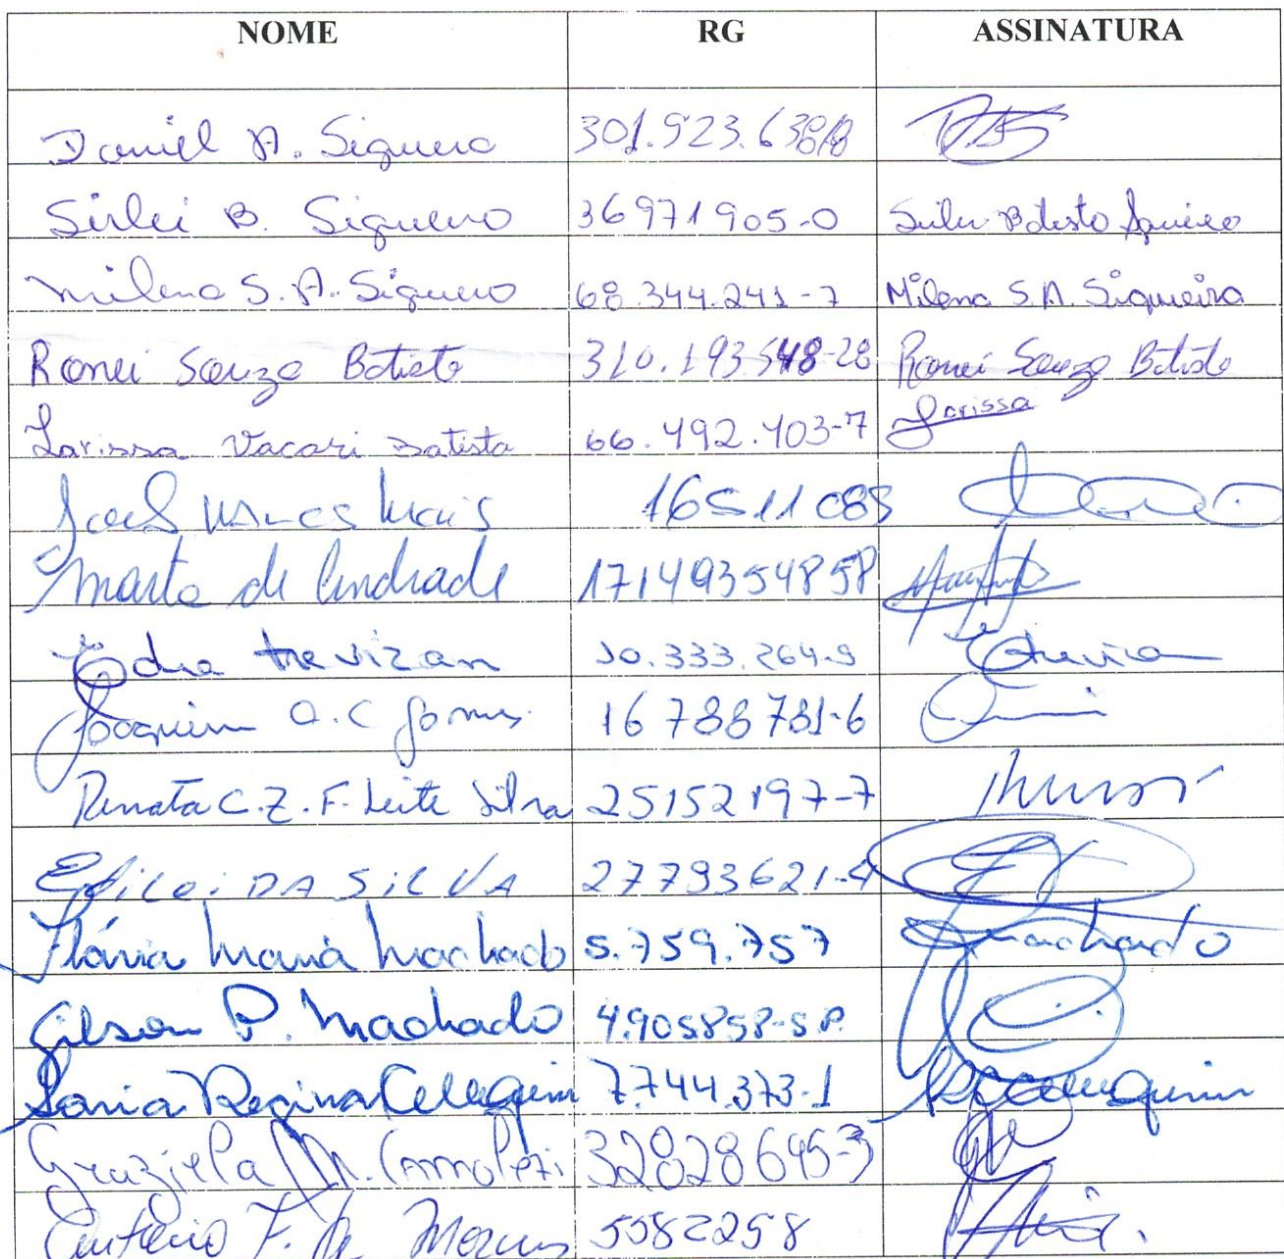 NOME RG ASSINATURA
Daniel A. Siqueira 301.923.638
Sirlei B. Siqueira 36971905-0 Sirlei Batista Siqueira
Milena S. A. Siqueira 68.344.241-7 Milena S. A. Siqueira
Ronei Souza Batista 310.193548-28 Ronei Souza Batista
Larissa Vacari Batista 66.492.403-7 Larissa
16511083
Marta de Andrade 17149354858
Edna trevizan 10.333.264-9
Joaquim A. C. Gomes 16788781-6
Renata C. Z. F. Leite Silva 25152197-7
DA SILVA 27793621-4
Flávia Maria Machado 5.759.757 Machado
Gilson P. Machado 4.905858-SP.
Sonia Regina 7.744.373-1
Graziela M. Camolezi 32828645-3
Antonio F. de Moraes 5582258